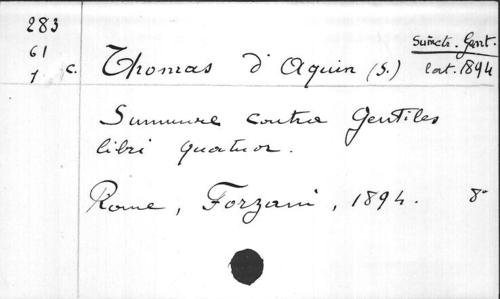 283
61
7 c.
Thomas d'Aquin (S.)
Sum̃ctr. Gent.
lat. 1894
Summae contra Gentiles
libri quatuor.
Rome, Forzani, 1894. 8°